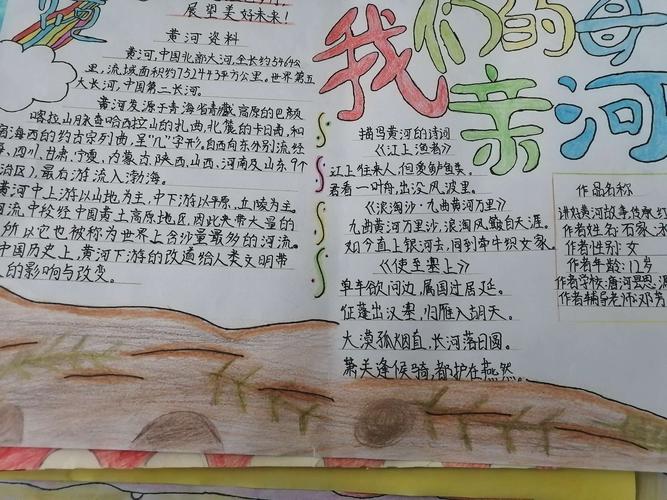 展望美好未来!
黄河资料
黄河,中国北部大河,全长约5464公
里,流域面积约752443平方公里。世界第五
大长河,中国第二长河。
黄河发源于青海省青藏高原的巴颜
喀拉山月
哈西拉山的扎曲,北麓的卡日曲,和
海西的约古宗列曲,呈"几"字形。自西向东分别流经
、四川、甘肃、宁夏、内蒙古、陕西、山西、河南及山东9个
治区),最后流入渤海。
黄河中上游以山地为主,中下游以平原、丘陵为主。
河流中段经中国黄土高原地区,因此夹带大量的
所以它也被称为世界上含沙量最多的河流。
中国历史上,黄河下游的改道给人类文明带
的影响与改变。
我们的母
亲河
描写黄河的诗词
《江上渔者》
江上往来人,但爱鲈鱼美。
君看一叶舟,出没风波里。
《浪淘沙·九曲黄河万里沙》
九曲黄河万里沙,浪淘风簸自天涯。
如今直上银河去,同到牵牛织女家。
《使至塞上》
单车欲问边,属国过居延。
征蓬出汉塞,归雁入胡天。
大漠孤烟直,长河落日圆。
萧关逢候骑,都护在燕然。
作品名称
讲好黄河故事,传承红
作者姓名:石家
作者性别:女
作者年龄:12岁
作者学校:唐河县思源
作者辅导老师:邓芳